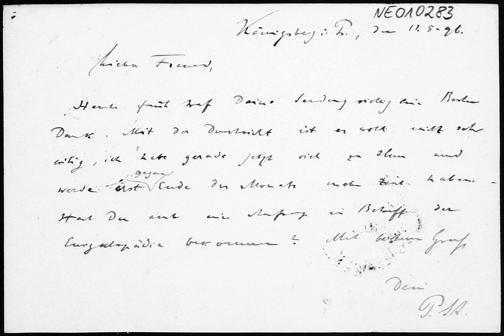 NEO10283
Königsberg i. Pr., den 11.5.96.
Lieber Freund,
Heute früh traf Deine Sendung richtig ein. Besten
Dank. Mit der Durchsicht ist es wohl nicht sehr
eilig, ich habe gerade jetzt viel zu thun und
werde erst gegen Ende des Monats mehr Zeit haben.
Hast Du auch eine Anfrage in Betreff der
Encyclopädie bekommen? Mit Gruß
Dein
P. St.